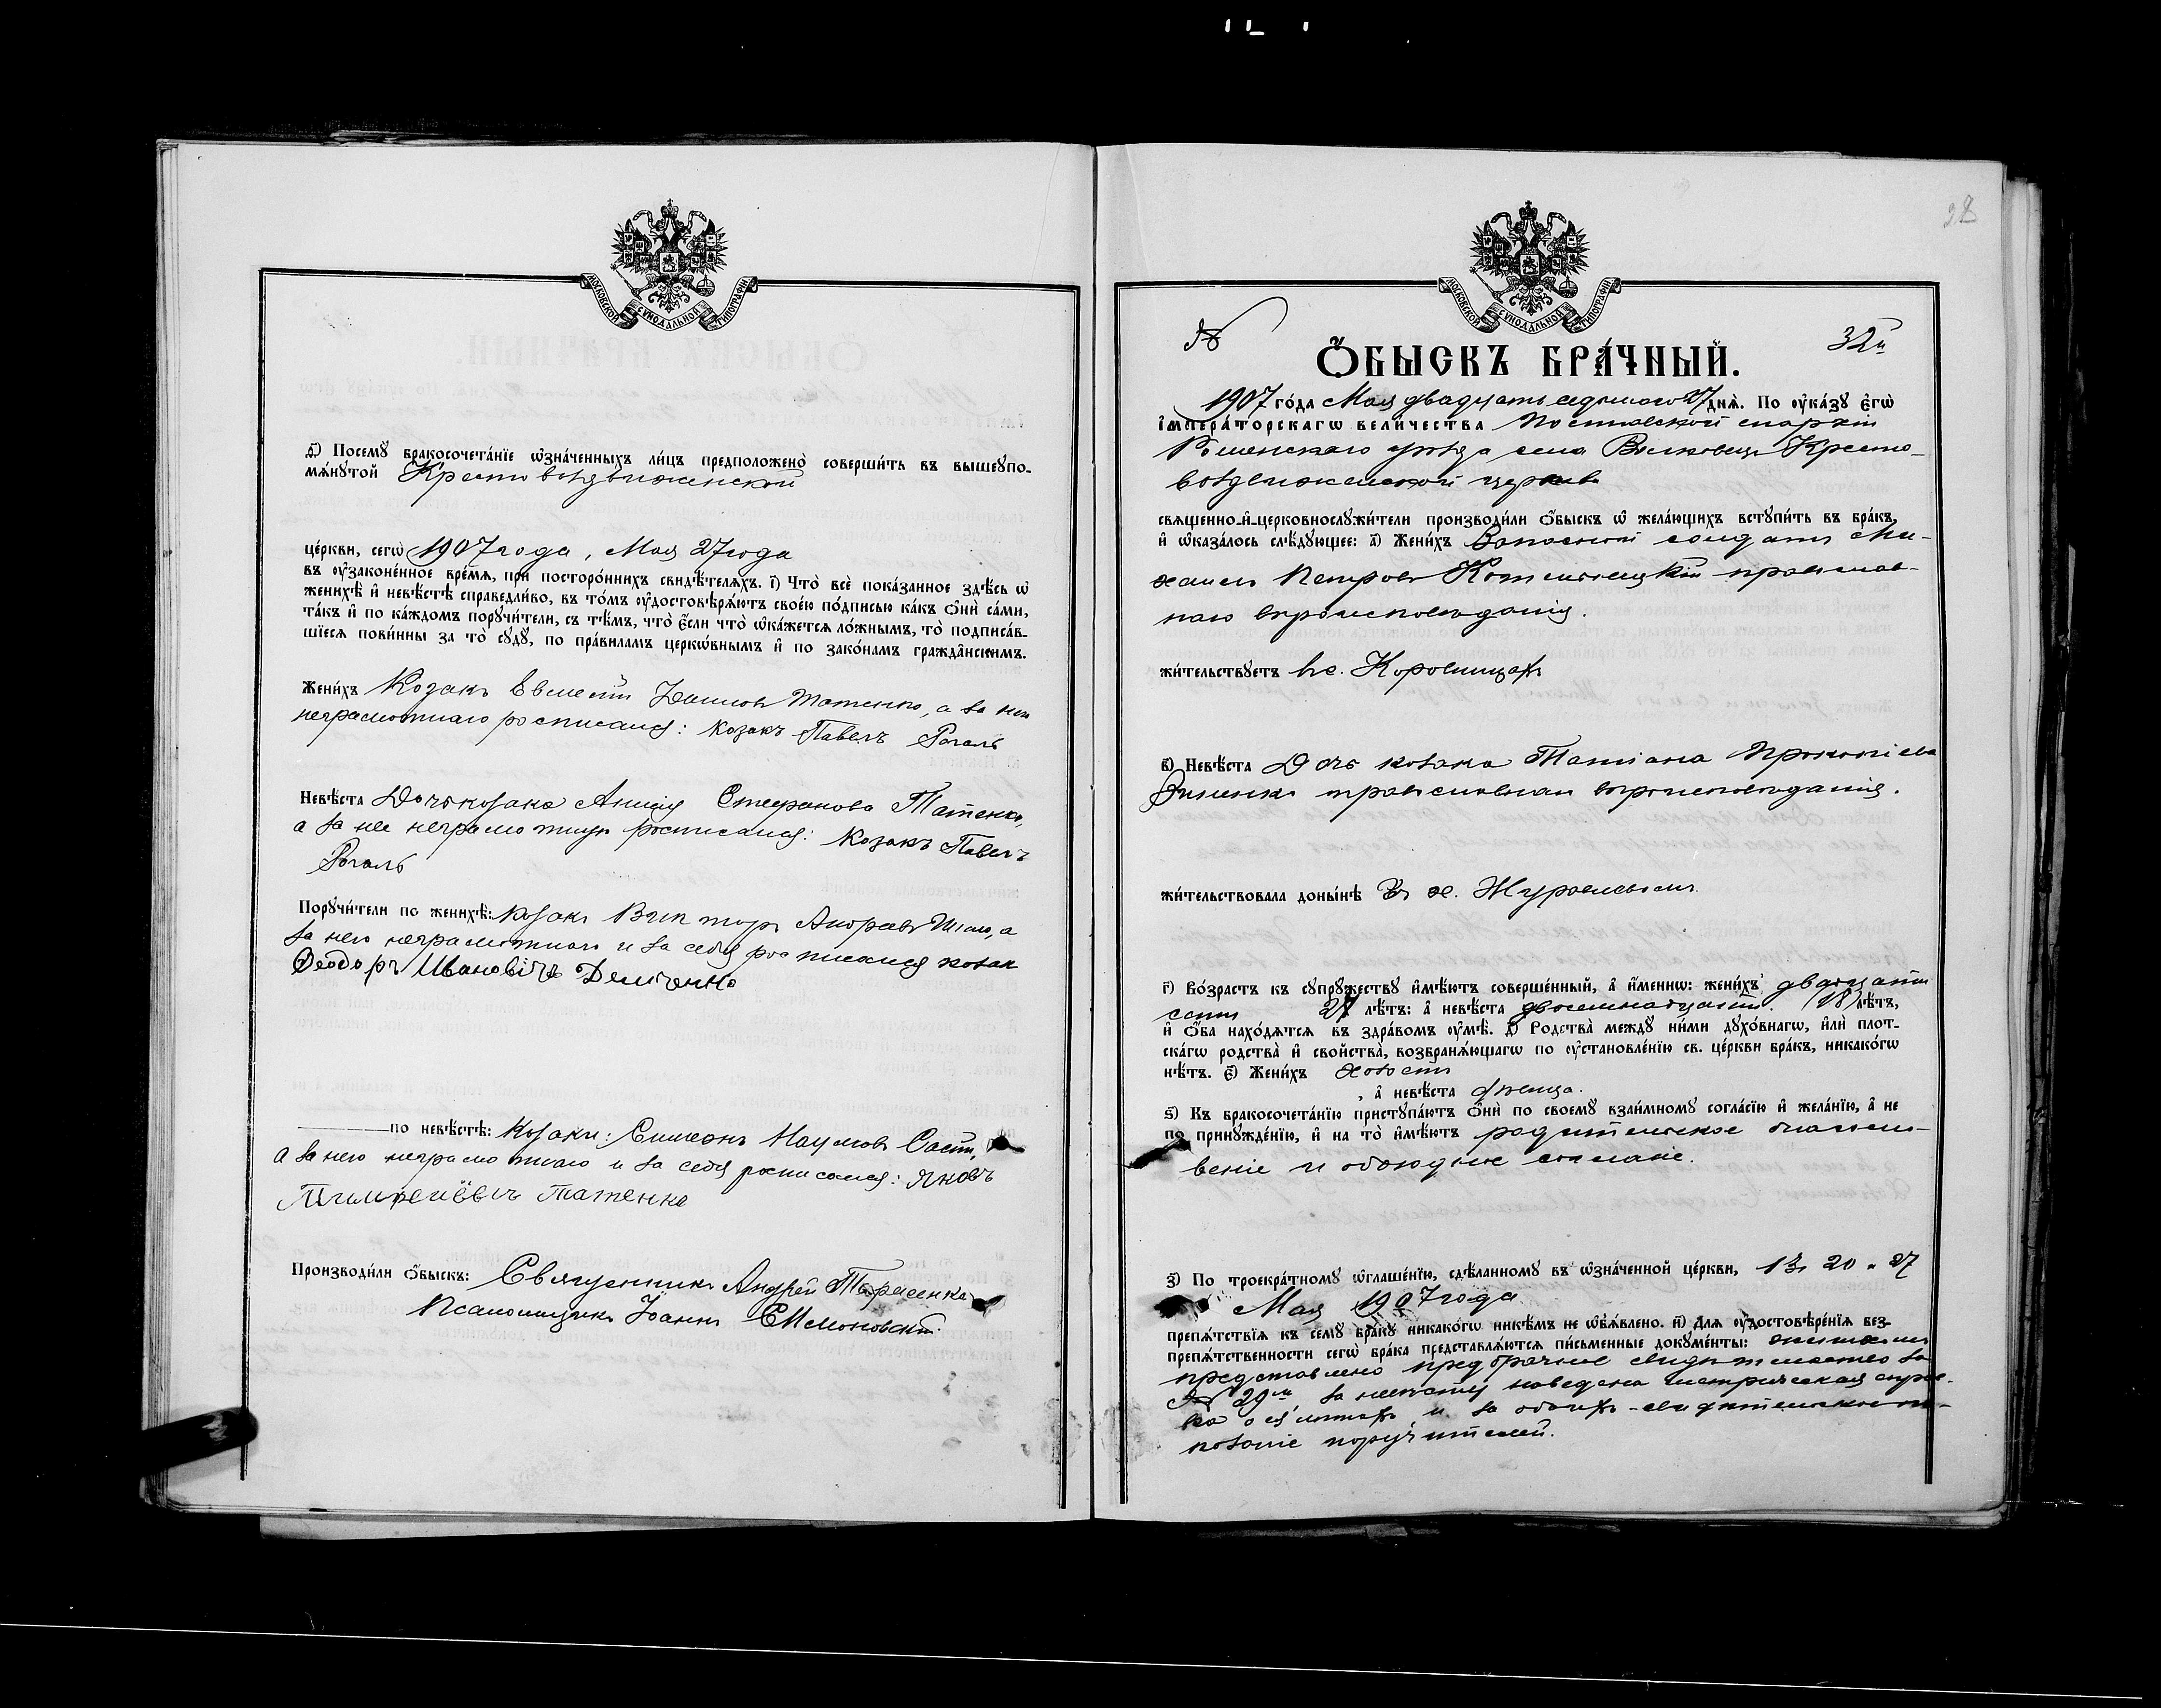 МОСКОВСКОЙ СѴНОДАЛЬНОЙ ТИПОГРАФІИ
Посемꙋ бракосочета́нїе ѡ҆зна́ченныхъ ли́цъ предположено̀ соверши́ть въ вышеꙋпо-
мѧ́нꙋтой Крестовоздвиженской
це́ркви, сегѡ̀ 1907 года, Мая 27 года
въ ᲂу҆законе́нное вре́мѧ, при посторо́ннихъ свидѣ́телѧхъ. і҃) Что̀ всѐ пока́занное здѣ́сь ѡ҆
женихѣ̀ и҆ невѣ́стѣ справедли́во, въ то́мъ ᲂу҆достовѣрѧ́ютъ свое́ю по́дписью ка́къ ѻ҆нѝ са́ми,
та́къ и҆ по ка́ждомъ порꙋчи́тели, съ тѣ́мъ, что̀ є҆́сли что̀ ѡ҆ка́жетсѧ ло́жнымъ, то̀ подписа́в-
шїесѧ пови́нны за то̀ сꙋдꙋ̀, по пра́виламъ церкѡ́внымъ и҆ по зако́намъ гражда̑нскимъ.
Жени́хъ Козакъ Евменій Татенко, а за него
неграмотнаго росписался: Козакъ Павелъ Рогаль
Невѣ́ста Дочь козака Анисія Стефанова Татенко,
а за нее неграмотную росписался: Козакъ Павелъ
Рогаль
Порꙋчи́тели по женихѣ̀: Козакъ Викторъ Андреевъ а
за него неграмотнаго и за себя росписался козак
Ѳеодоръ Ивановичъ Демченко
по невѣ́стѣ: Козаки: Симеонъ Наумовъ
а за него неграмотнаго и за себя росписался: Яковъ
Тимофеїевичъ Татенко
Производи́ли ѻ҆́быскъ: Священникъ Андрей Тарасенко
Псаломщикъ Іоаннъ
28
МОСКОВСКОЙ СѴНОДАЛЬНОЙ ТИПОГРАФІИ
№ 32й
Ѻ҆́БЫСКЪ БРА́ЧНЫЙ.
1907 го́да Мая двадцать седьмаго 27 днѧ̀. По ᲂу҆ка́зꙋ є҆гѡ̀
і҆мпера́торскагѡ вели́чества Полтавской епархіи
Роменскаго уѣзда села Волковецъ Кресто-
воздвиженской церкви
свѧщенно-и҆-церковнослꙋжи́тели производи́ли ѻ҆́быскъ ѡ҆ жела́ющихъ встꙋпи́ть въ бра́къ,
и҆ ѡ҆каза́лось слѣ́дꙋющее: а҃) Жени́хъ Запасной солдатъ Ми-
хаилъ Петровъ православ-
наго вѣроисповѣданія.
жи́тельствꙋетъ въ с. Коровинцахъ
в҃) Невѣ́ста Дочь козака Татіана Прокопіева
православнаго вѣроисповѣданія.
жи́тельствовала доны́нѣ въ х. Журавлевомъ
г҃) Во́зрастъ къ сꙋпрꙋ́жествꙋ и҆мѣ́ютъ соверше́нный, а҆ и҆́меннѡ: жени́хъ двадцати
семи 27 лѣ́тъ: а҆ невѣ́ста двосемнадцати (18) лѣ́тъ,
и҆ ѻ҆́ба нахо́дѧтсѧ въ здра́вомъ ᲂу҆мѣ̀. д҃) Родства̀ междꙋ̀ ни́ми дꙋхо́внагѡ, и҆лѝ плот-
ска́гѡ родства̀ и҆ сво́йства̀, возбранѧ́ющагѡ по ᲂу҆становле́нїю св. це́ркви бра́къ, никако́гѡ
нѣ́тъ. є҃) Жени́хъ холостъ
, а҆ невѣ́ста дѣвица.
ѕ҃) Къ бракосочета́нїю пристꙋпа́ютъ ѻ҆нѝ по своемꙋ̀ взаи́мномꙋ согла́сїю и҆ жела́нїю, а҆ не
по принꙋжде́нїю, и҆ на то̀ и҆мѣ́ютъ родительское благосло-
веніе и обоюдное согласіе.
з҃) По троекра́тномꙋ ѡ҆глаше́нїю, сдѣ́ланномꙋ въ ѡ҆зна́ченной це́ркви, 13, 20 и 27
Мая 1907 года
препѧ́тствїѧ къ семꙋ̀ бра́кꙋ никако́гѡ никѣ́мъ не ѡ҆б̾ѧ́влено. и҃) Длѧ ᲂу҆достовѣре́нїѧ без-
препѧ́тственности сегѡ̀ бра́ка представлѧ́ютсѧ пи́сьменные докꙋме́нты: женихомъ
представлено предбрачное свидѣтельство за
№ 29м за невѣсту наведена метрическая справ-
ка о ея лѣтахъ и за обоихъ свидѣтельское по-
казаніе поручителей.